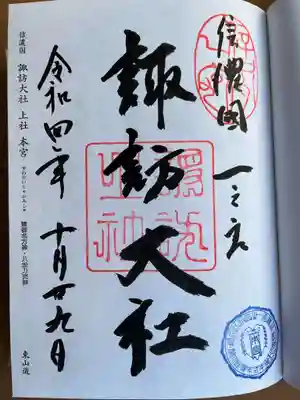 信濃國
一之宮
諏訪大社
令和四年
十月廿九日
信濃国 諏訪大社 上社 本宮
東山道